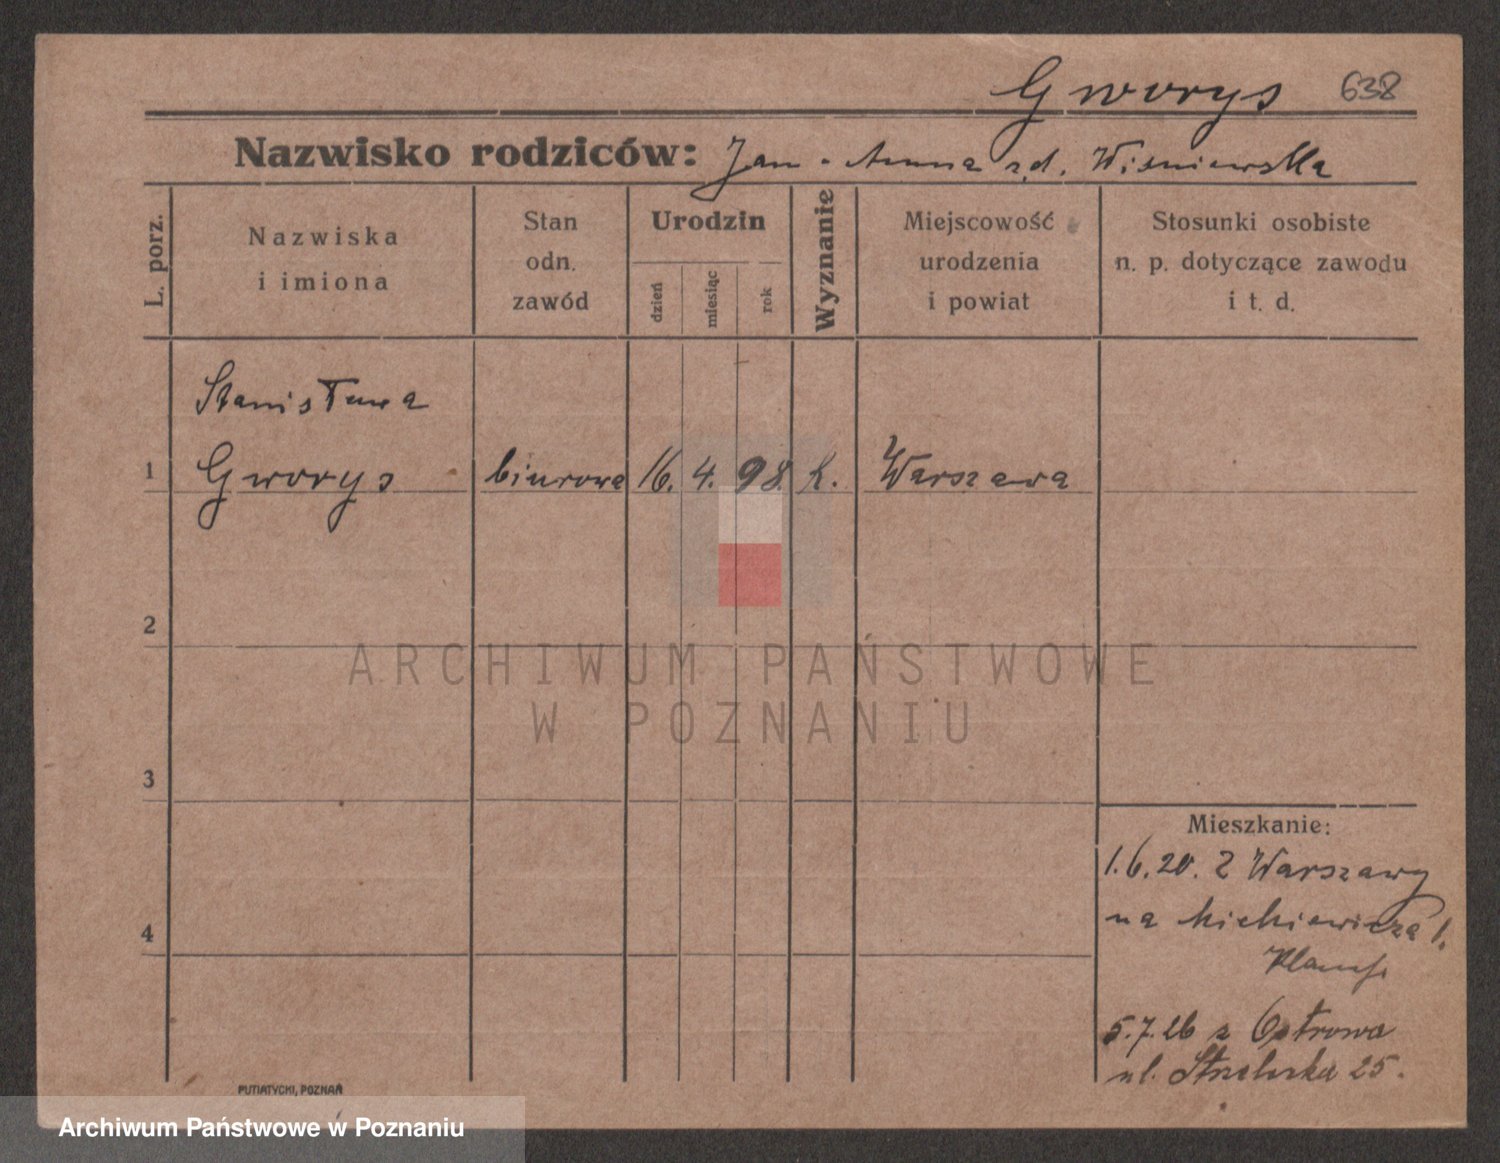 Gworys 638
Nazwisko rodziców: Jan - Anna z d. Wiśniewska
L. porz.
Nazwiska
i imiona
Stan
odn.
zawód
Urodzin
dzień
miesiąc
rok
Wyznanie
Miejscowość
urodzenia
i powiat
Stosunki osobiste
n. p. dotyczące zawodu
i t. d.
Stanisława
1 Gworys biurowa 16. 4. 98. k. Warszawa
2
ARCHIWUM PAŃSTWOWE
W POZNANIU
3
Mieszkanie:
1.6.20. z Warszawy
4 na Mickiewicza 1.
5.7.26 z Ostrowa
ul. Strzelecka 25.
PUTIATYCKI, POZNAŃ
Archiwum Państwowe w Poznaniu